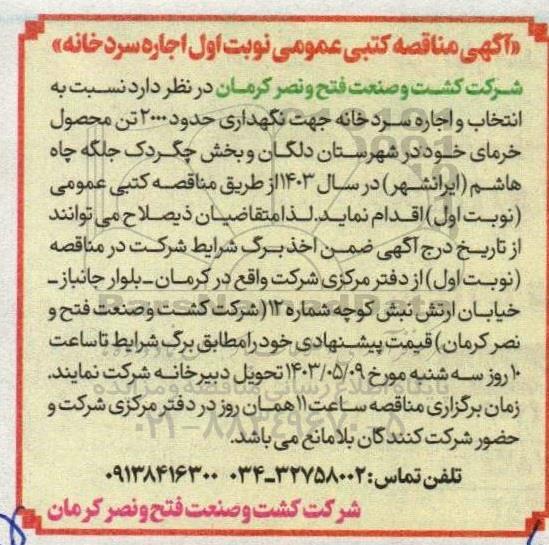 «آگهی مناقصه کتبی عمومی نوبت اول اجاره سردخانه»
شرکت کشت و صنعت فتح و نصر کرمان در نظر دارد نسبت به
انتخاب و اجاره سردخانه جهت نگهداری حدود ۲۰۰۰ تن محصول
خرمای خود در شهرستان دلگان و بخش چگردک جلگه چاه
هاشم (ایرانشهر) در سال ۱۴۰۳ از طریق مناقصه کتبی عمومی
(نوبت اول) اقدام نماید. لذا متقاضیان ذیصلاح می توانند
از تاریخ درج آگهی ضمن اخذ برگ شرایط شرکت در مناقصه
(نوبت اول) از دفتر مرکزی شرکت واقع در کرمان ـ بلوار جانباز ـ
خیابان ارتش نبش کوچه شماره ۱۲ (شرکت کشت و صنعت فتح و
نصر کرمان) قیمت پیشنهادی خود را مطابق برگ شرایط تا ساعت
۱۰ روز سه شنبه مورخ ۱۴۰۳/۰۵/۰۹ تحویل دبیرخانه شرکت نمایند.
زمان برگزاری مناقصه ساعت ۱۱ همان روز در دفتر مرکزی شرکت و
حضور شرکت کنندگان بلامانع می باشد.
تلفن تماس: ۳۲۷۵۸۰۰۲-۰۳۴ ۰۹۱۳۸۴۱۶۳۰۰
شرکت کشت و صنعت فتح و نصر کرمان